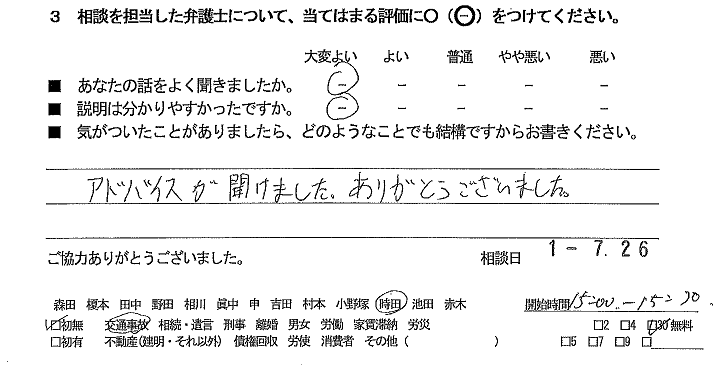 3 相談を担当した弁護士について、当てはまる評価に○(⊖)をつけてください。
大変よい よい 普通 やや悪い 悪い
■ あなたの話をよく聞きましたか。 － － － － －
■ 説明は分かりやすかったですか。 － － － － －
■ 気がついたことがありましたら、どのようなことでも結構ですからお書きください。
アドバイスが聞けました。ありがとうございました。
ご協力ありがとうございました。 相談日 1-7.26
森田 榎本 田中 野田 相川 眞中 申 吉田 村本 小野塚 時田 池田 赤木 開始時間 15:00.-15:30
☑初無 交通事故 相続・遺言 刑事 離婚 男女 労働 家賃滞納 労災 □2 □4 ☑30'無料
□初有 不動産(建明・それ以外) 債権回収 労使 消費者 その他( ) □5 □7 □9 □